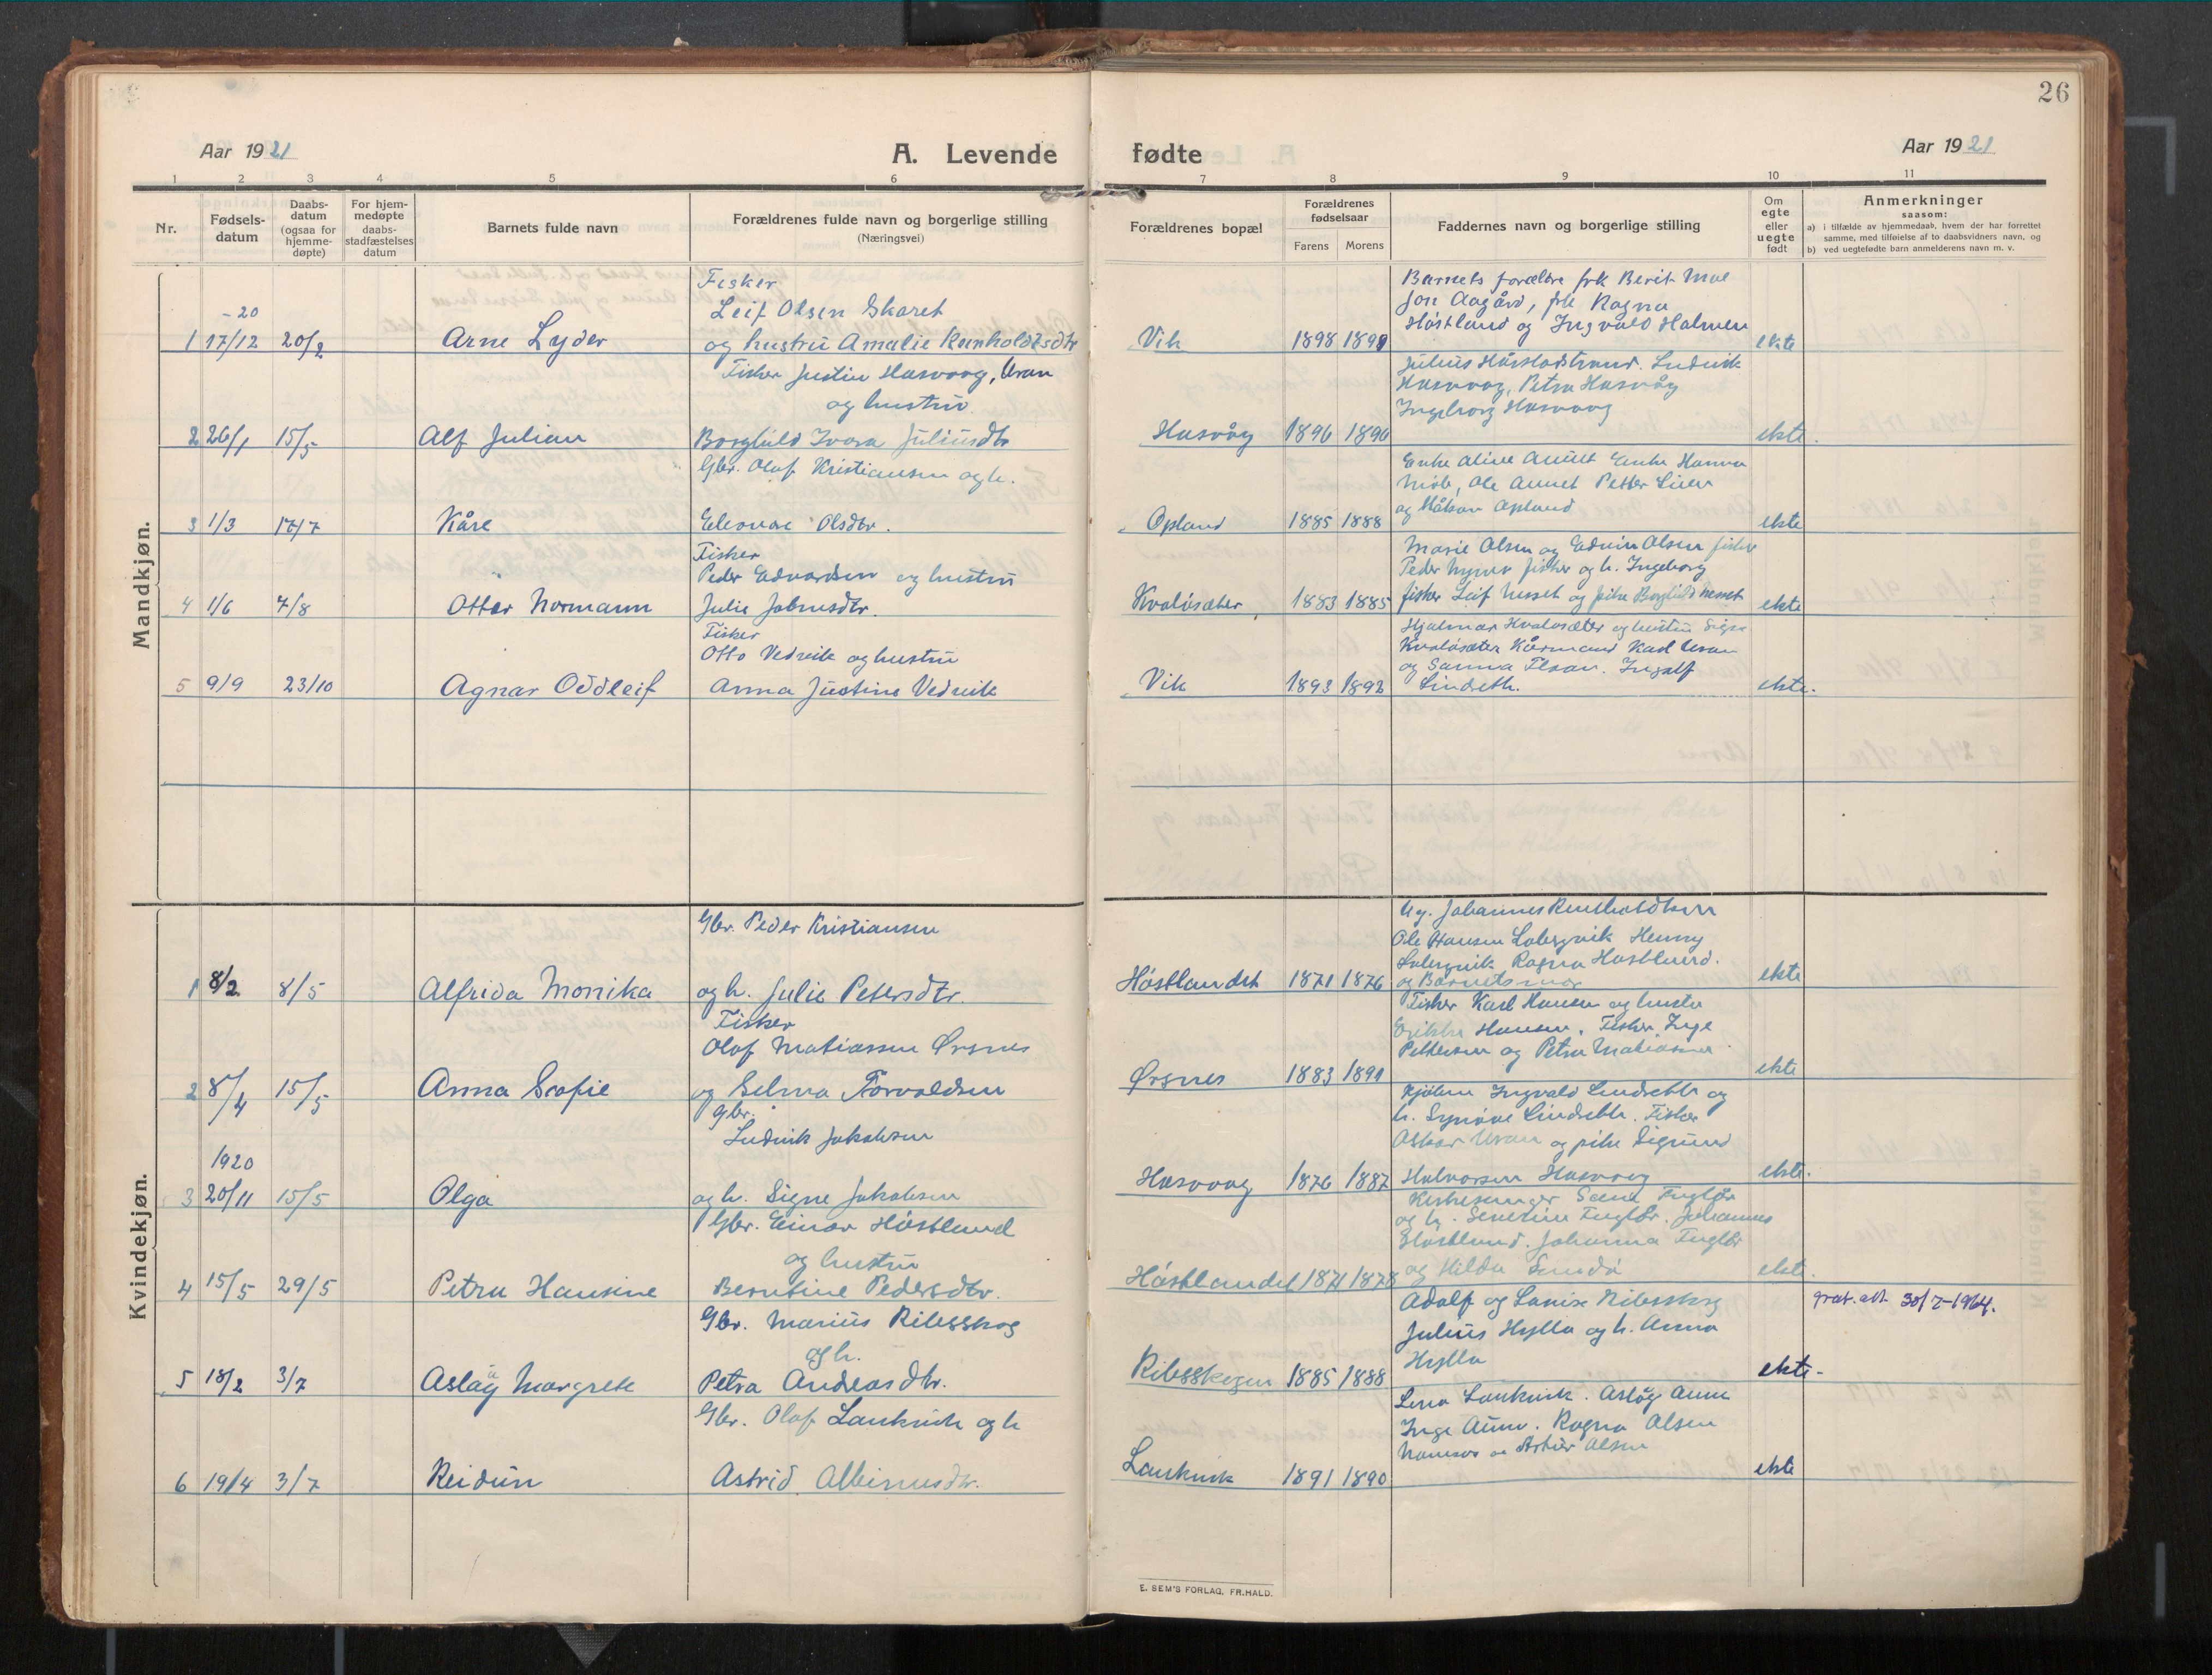 26
Aar 1921
A. Levende fødte
Aar 1921
1 2 3 4 5 6 7 8 9 10 11
Nr.
Fødsels-
datum
Daabs-
datum
(ogsaa for
hjemme-
døpte)
For hjem-
medøpte
daabs-
stadfæstelses
datum
Barnets fulde navn
Forældrenes fulde navn og borgerlige stilling
(Næringsvei)
Forældrenes bopæl
Forældrenes
fødselsaar
Farens Morens
Faddernes navn og borgerlige stilling
Om
egte
eller
uegte
født
Anmerkninger
saasom:
a) i tilfælde av hjemmedaab, hvem der har forrettet
samme, med tilføielse af to daabsvidners navn, og
b) ved uegtefødte barn anmelderens navn m. v.
Mandkjøn.
Fisker
Leif Olsen Skaret
-20
1 17/12 20/2 Arne Lyder og hustru Amalie
Vik 1898
Barnets forældre frk Berit Moe
Jon Aagård, frk Ragna
Høstland og Ingvald Holmen
ekte
Fisker Justin Hasvaag, Uran
og hustru
2 26/1 15/5 Alf Julian Borghild Ivara Juliusdtr
Hasvåg 1896 1896
Julius Hårstadstrand. Ludvik
Hasvaag, Petra Hasvåg
Ingeborg Hasvaag
ekte.
Gbr. Olaf Kristiansen og h.
3 1/3 17/7 Kåre Eleonore Olsdtr.
Opland 1885 1888
Enke Aline Aunet Enke Hanna
Moe, Ole Aunet Petter Lien
og Håkon Opland
ekte
Fisker
Peder Edvardsen og hustru
4 1/6 7/8 Otter Normann Julie Johnsdtr.
Kvaløsæter 1883 1885
Marie Olsen og Edvin Olsen fisker
Peder Myren fisker og h. Ingeborg
fisker Leif Nesset og pike Borghild Nesset
ekte
Fisker
Otto Vedvik og hustru
5 9/9 23/10 Agnar Oddleif Anna Justine Vedvik
Vik 1893 1892
Hjalmar Kvaløsæter og hustru Signe
Kvaløsæter Kårmand Karl Uran
og Sanna Flaan. Ingolf
Lindseth.
ekte.
Kvindekjøn.
Gbr. Peder Kristiansen
1 8/2 8/5 Alfrida Monika og h. Julie Petersdtr.
Høstlandet 1871 1876
Ug. Johannes
Ole Hansen Lobergvik Henny
Lobergvik Ragna Høstland.
og Barnets mor
ekte
Fisker
Olaf Matiassen Ørsnes
2 8/4 15/5 Anna Sofie og Selma Torvaldsen
Ørsnes 1883 1891
Fisker Karl Hansen og hustru
Erikka Hansen. Fisker Inge
Pettersen og Petra Matiassen
ekte
gbr.
Ludvik Jakobsen
1920
3 20/11 15/5 Olga og h. Signe Jakobsen
Hasvaag 1876 1887
Ingvald Lindseth og
h. Synøve Lindseth. Fisker
Oskar Uran og pike Sigrund
Halvorsen Hasvaag
ekte.
Gbr. Einar Høstland
og hustru
4 15/5 29/5 Petra Hansine Berntine Pedersdtr.
Høstlandet 1871 1878
Kirkesanger Fuglår
og h. Severine Fuglår. Johannes
Høstland. Johanna Fuglår
og Hilda
ekte.
Gbr. Marius Ribesskog
og h.
5 18/2 3/7 Aslåg Margrete Petra Andreasdtr.
Ribesskogen 1885 1888
Adolf og Lovise Ribesskog
Julius Hylla og h. Anna
Hylla
ekte.
30/7-1964.
Gbr. Olaf Laukvik og h
6 19/4 3/7 Reidun Astrid Albinusdtr.
Laukvik 1891 1890
Lena Laukvik. Aslåg Aune
Inge Aune. Ragna Olsen
Namsos og Artur Olsen
ekte
E. SEM'S FORLAG, FR.HALD.